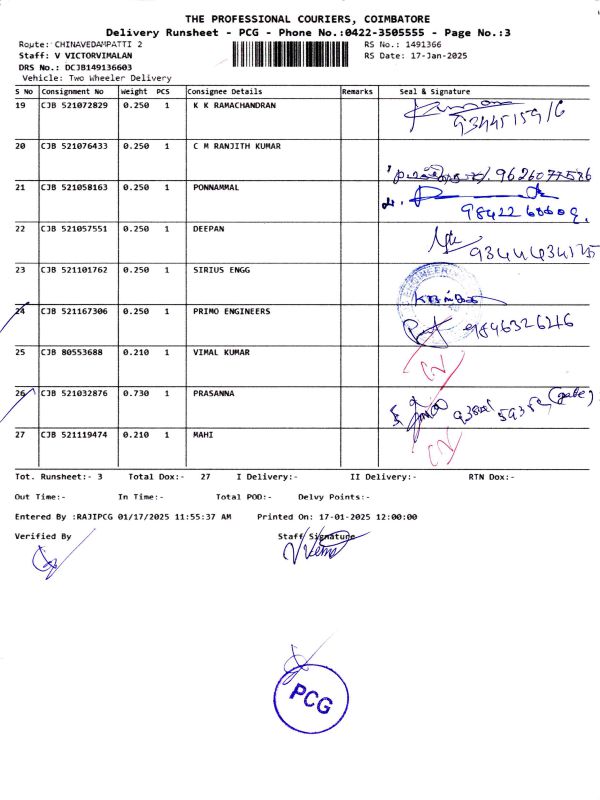 THE PROFESSIONAL COURIERS, COIMBATORE
Delivery Runsheet - PCG - Phone No.:0422-3505555 - Page No.:3
Route: CHINAVEDAMPATTI 2 RS No.: 1491366
Staff: V VICTORVIMALAN RS Date: 17-Jan-2025
DRS No.: DCJB149136603
Vehicle: Two Wheeler Delivery
S No Consignment No Weight PCS Consignee Details Remarks Seal & Signature
19 CJB 521072829 0.250 1 K K RAMACHANDRAN
20 CJB 521076433 0.250 1 C M RANJITH KUMAR
9626077586
21 CJB 521058163 0.250 1 PONNAMMAL
22 CJB 521057551 0.250 1 DEEPAN
23 CJB 521101762 0.250 1 SIRIUS ENGG
24 CJB 521167306 0.250 1 PRIMO ENGINEERS
9846326246
25 CJB 80553688 0.210 1 VIMAL KUMAR
26 CJB 521032876 0.730 1 PRASANNA
(gate)
27 CJB 521119474 0.210 1 MAHI
Tot. Runsheet:- 3 Total Dox:- 27 I Delivery:- II Delivery:- RTN Dox:-
Out Time:- In Time:- Total POD:- Delvy Points:-
Entered By :RAJIPCG 01/17/2025 11:55:37 AM Printed On: 17-01-2025 12:00:00
Verified By Staff Signature
PCG